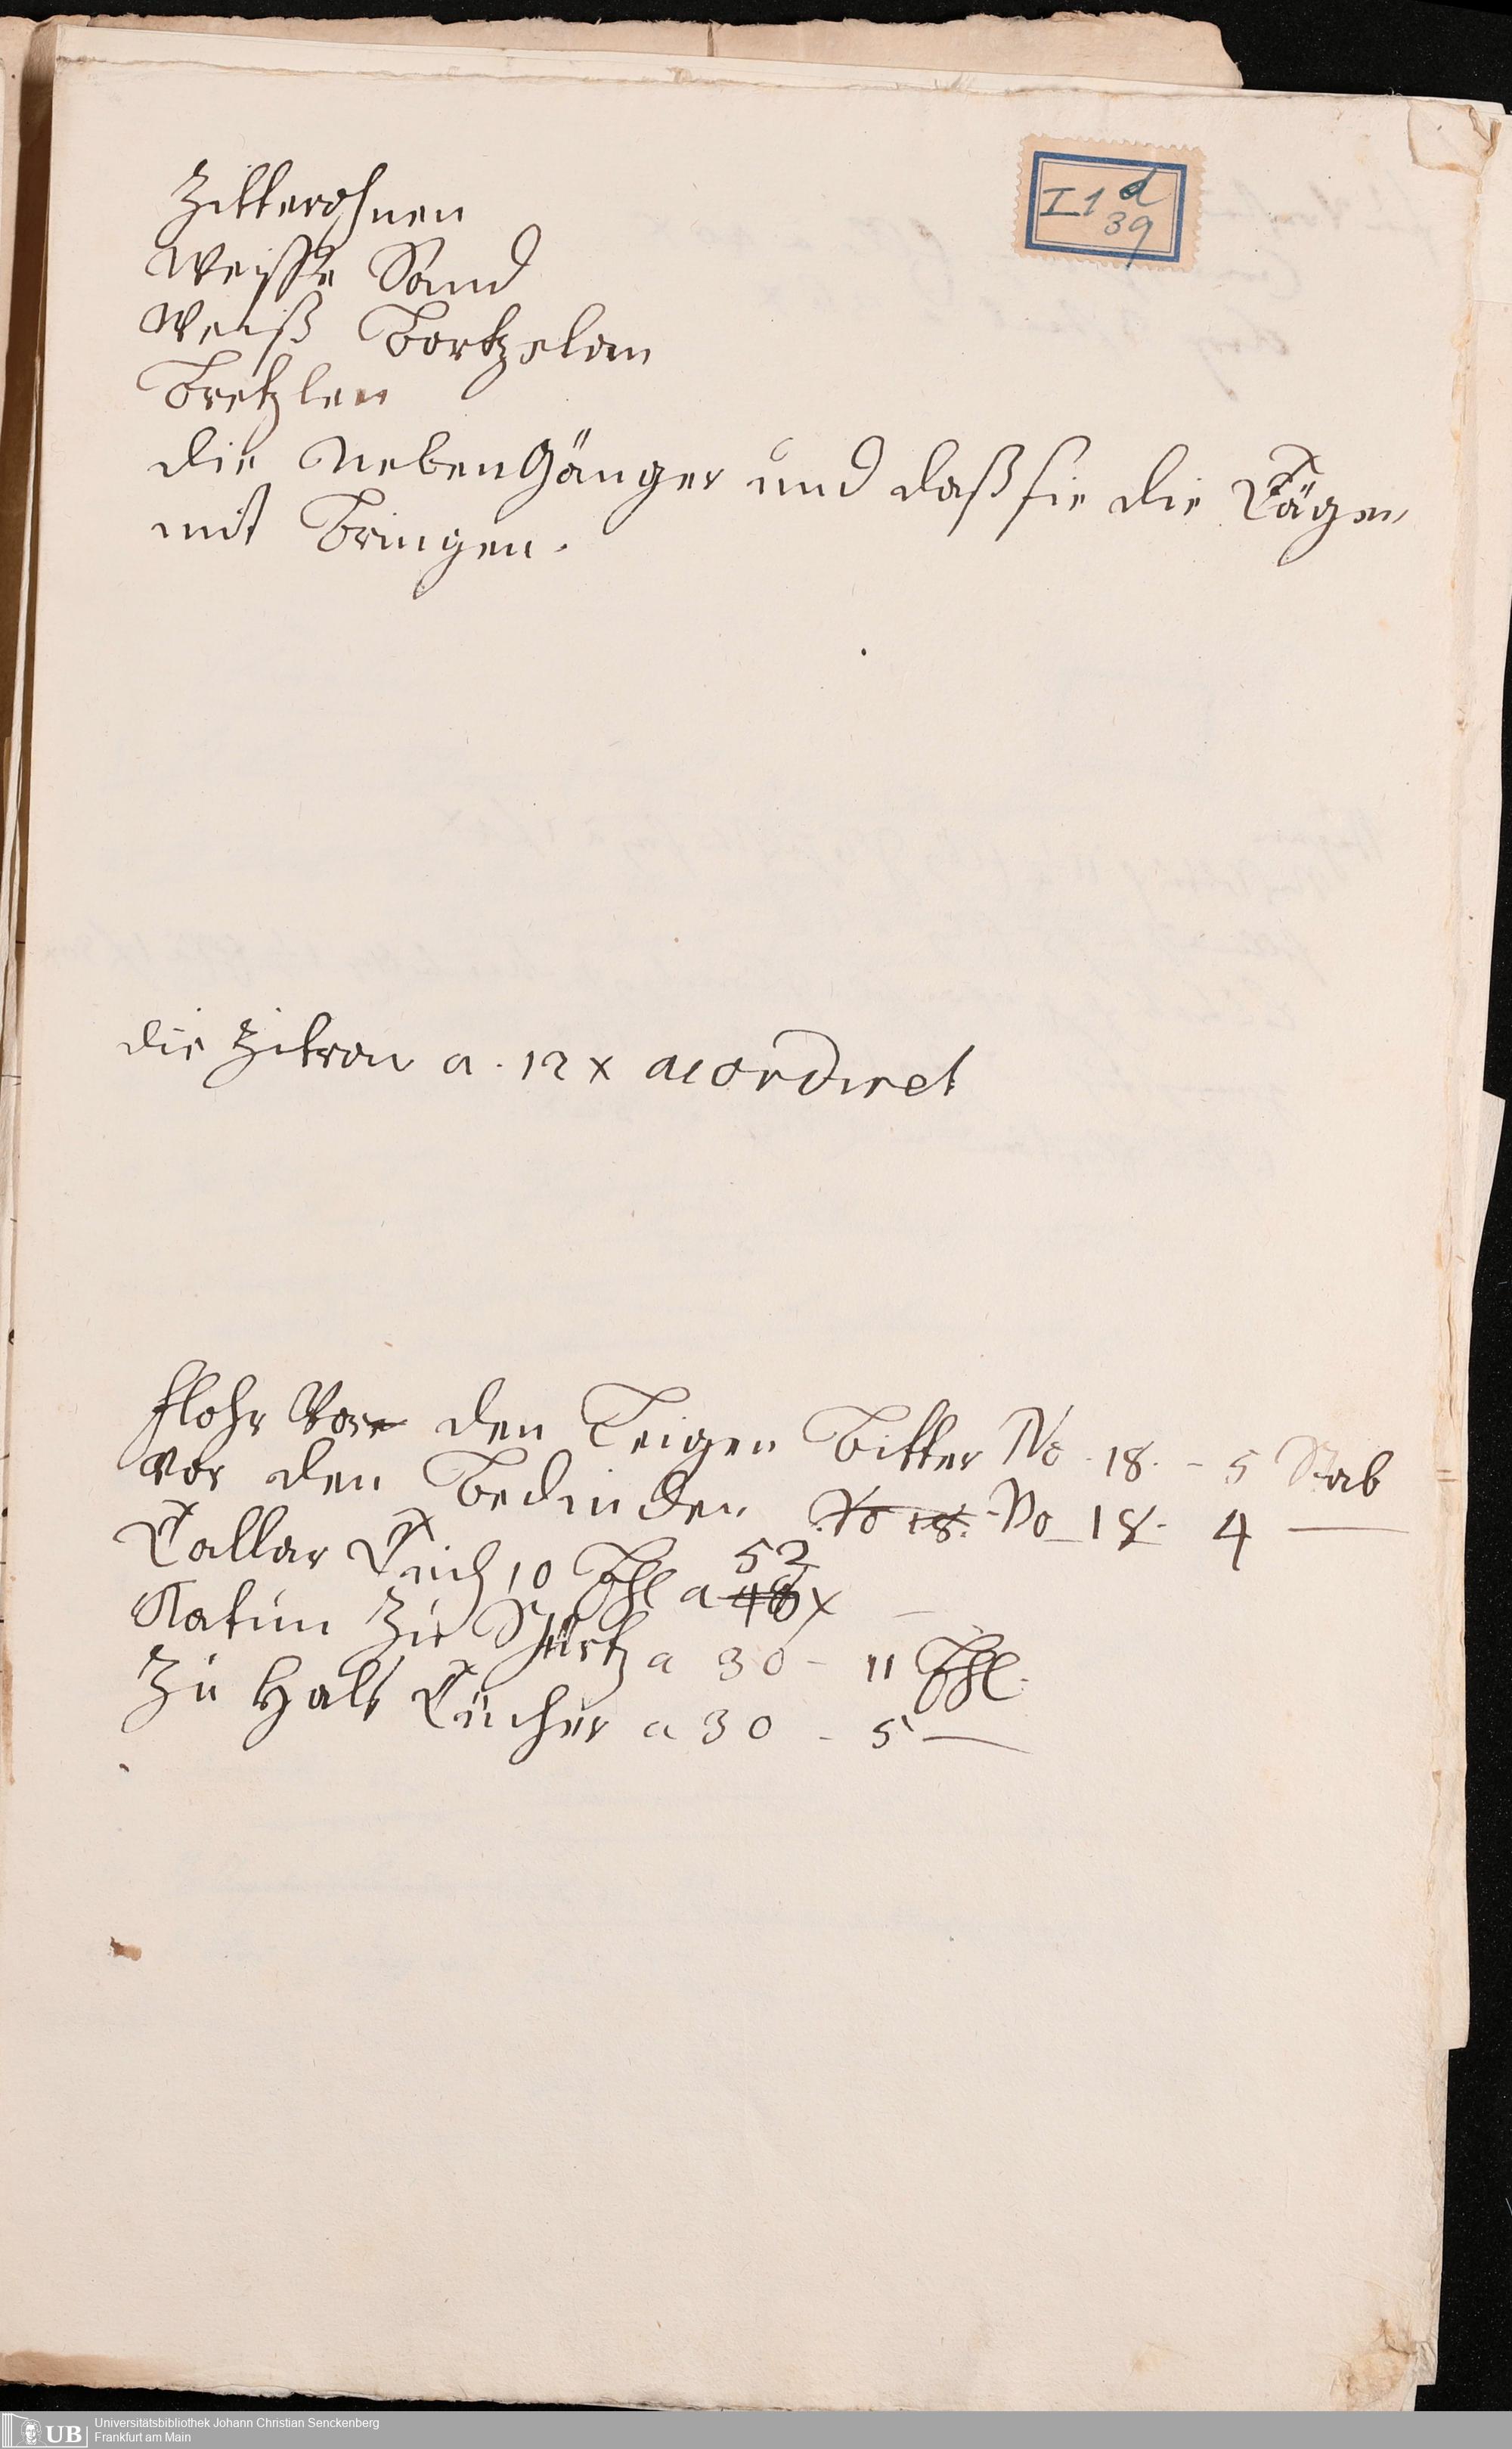 I 1 d
39
Zitterohnen
Weisse Sand
Weiß Bortzelan
Bretzlen
die Neben Gänger und daß sie die Däge
mit Bringen.
die Zitron a. 12 x acordiret
flohr Vor den Leigen Bitter No. 18. - 5 Stab
vor den Bedinden No 18. No 18. 4 —
Dallar Duch 10 Ehl a 48 52 x —
Katun Zu Schürtz a 30 - 11 Ehl.
Zu Halt Dücher a 30 - 5 —
Universitätsbibliothek Johann Christian Senckenberg
Frankfurt am Main
UB